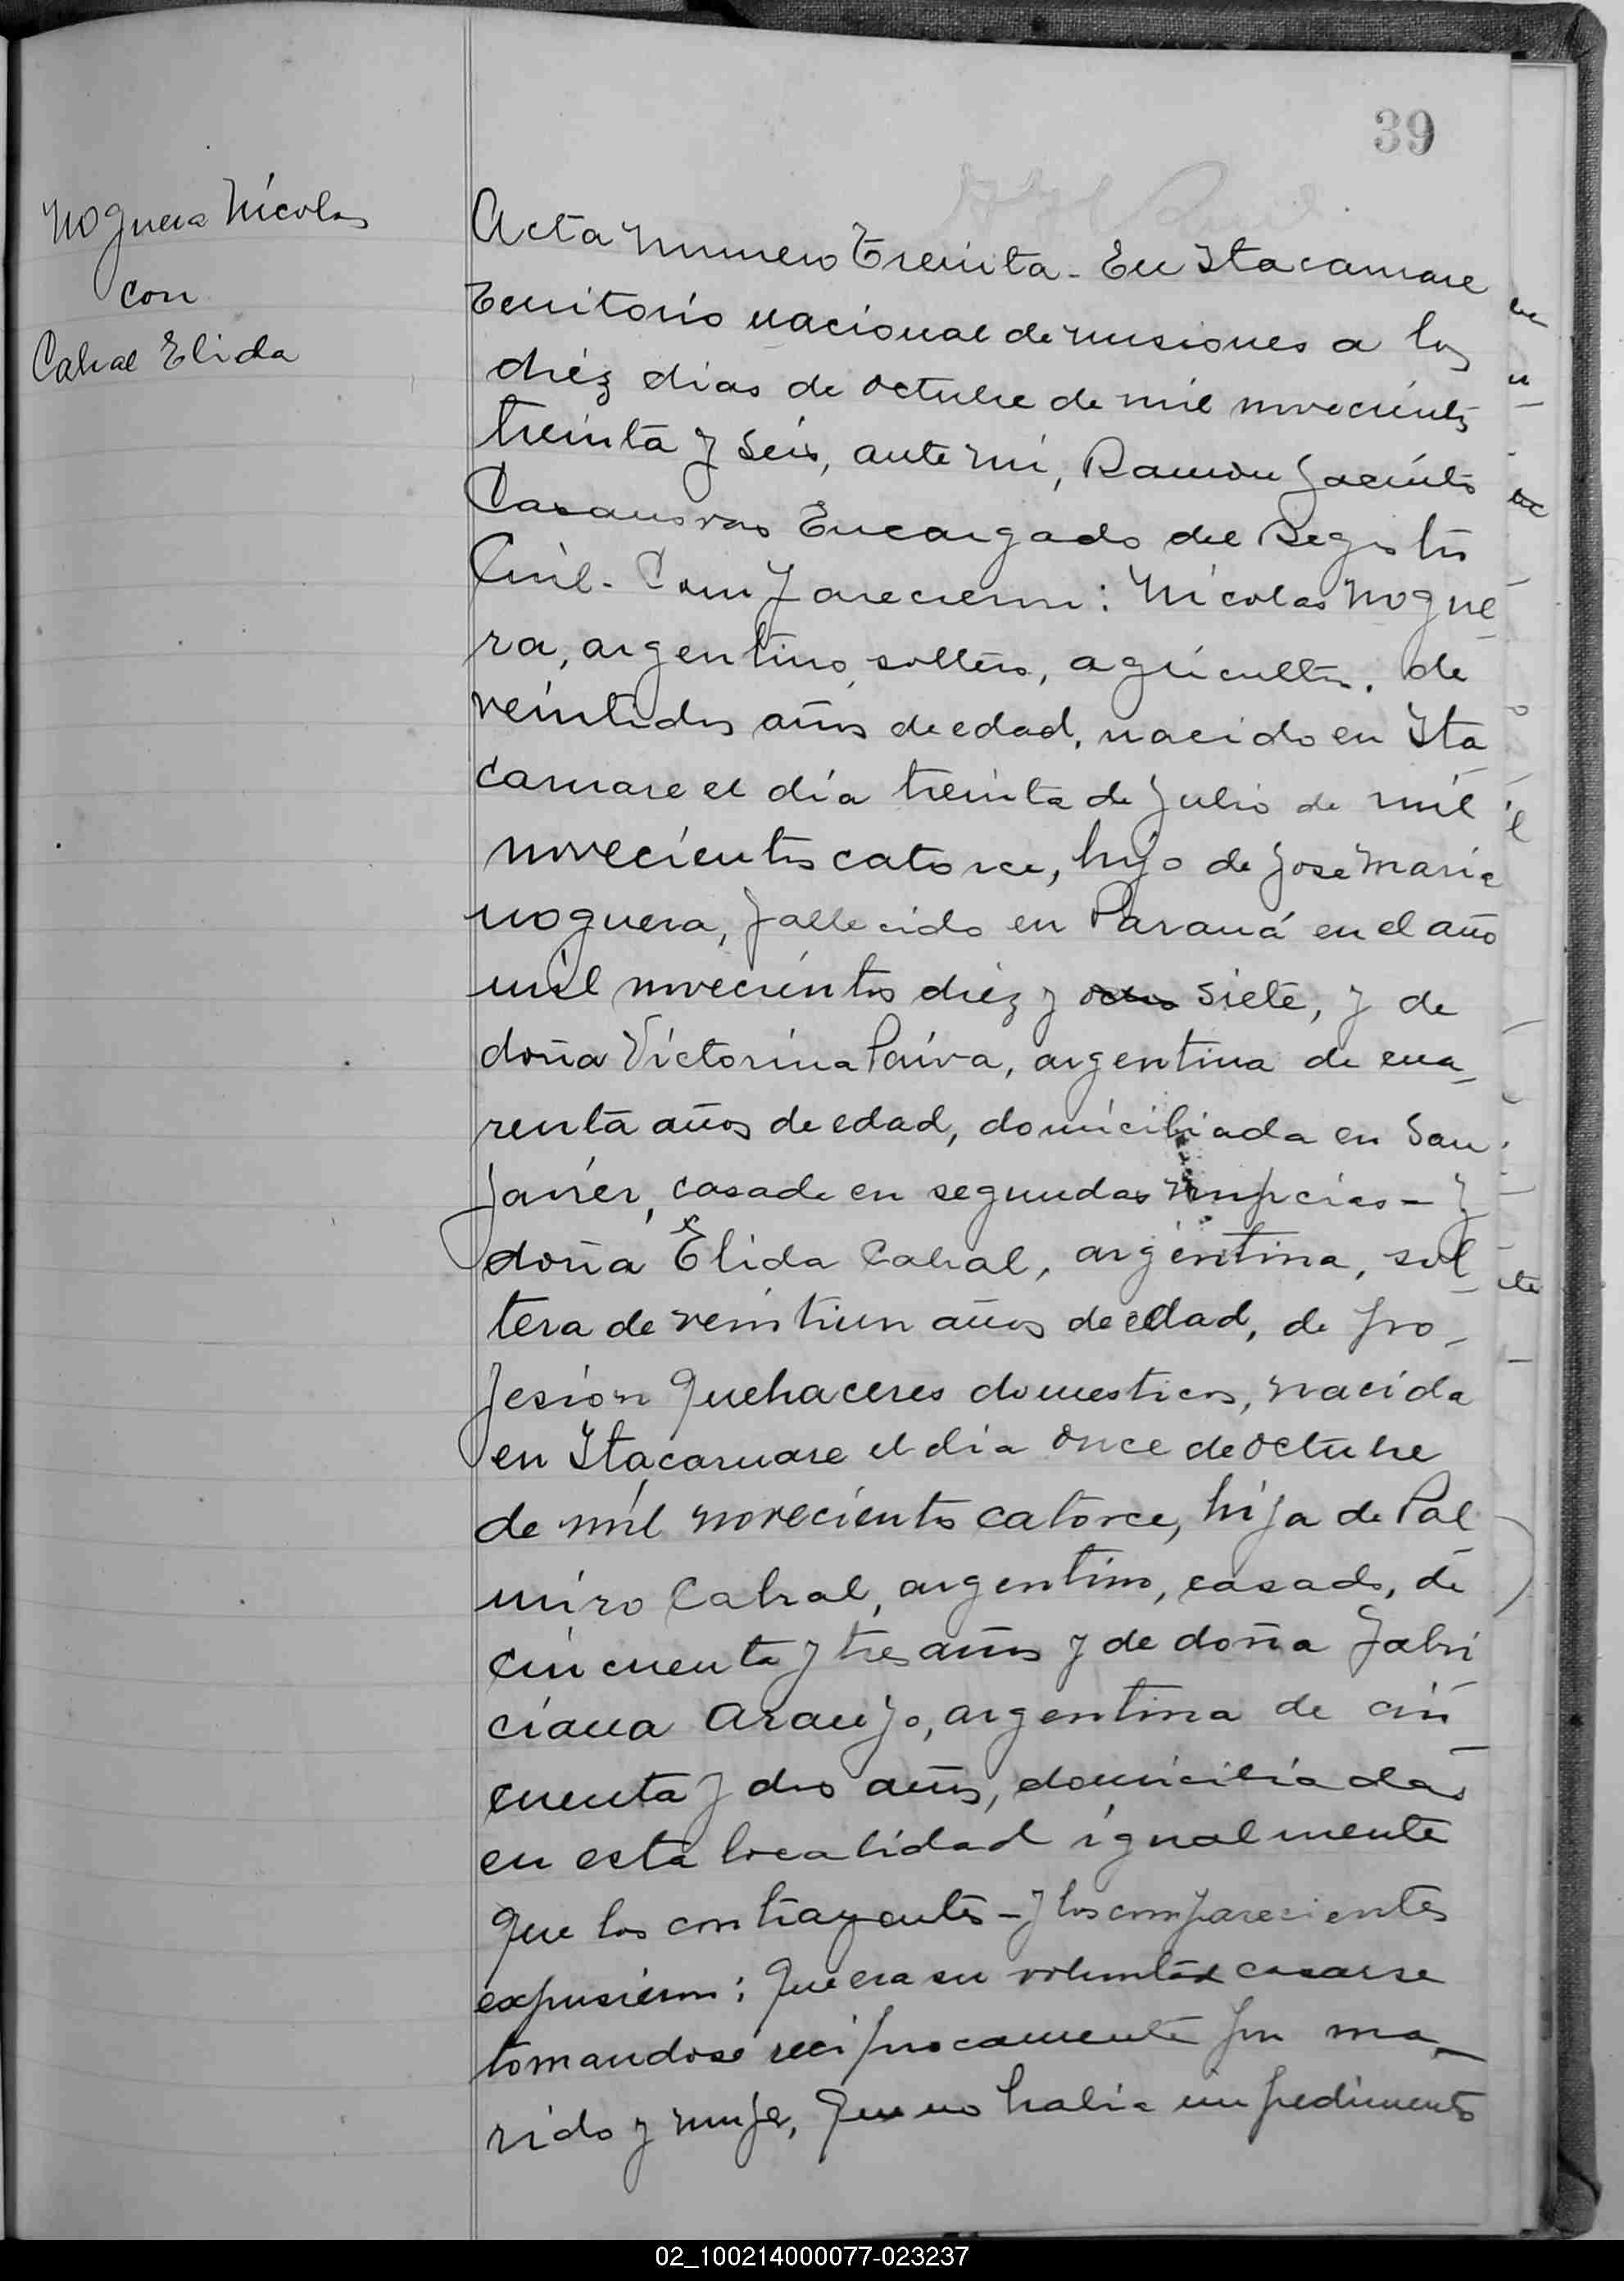 39
Noguera Nicolas
con
Cabral Elida
Acta numero Treinta - En Itacaruare
Territorio nacional de misiones a los
diéz dias de octubre de mil novecientos
treinta y seis, ante mi, Ramon Jacinto
Casanovas Encargado del Registro
Civil - Comparecieron: Nicolas Nogue
ra, argentino, soltero, agricultor, de
veintidos años de edad, nacido en Ita
caruare el día treinta de julio de mil
novecientos catorce, hijo de Jose Maria
noguera, fallecido en Paraná en el año
mil novecientos diéz y ocho siete, y de
doña Victorina Paiva, argentina de cua_
renta años de edad, domiciliada en San
Javier, casada en segundas nupcias - y
doña Elida Cabral, argentina, sol_
tera de veintiun años de edad, de pro_
fesion quehaceres domesticos, nacida
en Itacaruare el dia once de octubre
de mil novecientos catorce, hija de Pal
miro Cabral, argentino, casado, de
cincuenta y tres años y de doña Fabri
ciana Araujo, argentina de cin
cuenta y dos años, domiciliadas
en esta localidad igualmente
que los contrayentes - y los comparecientes
expusieron: Que era su voluntad casarse
tomandose reciprocamente por ma_
rido y mujer, Que no habia impedimento
02_100214000077-023237